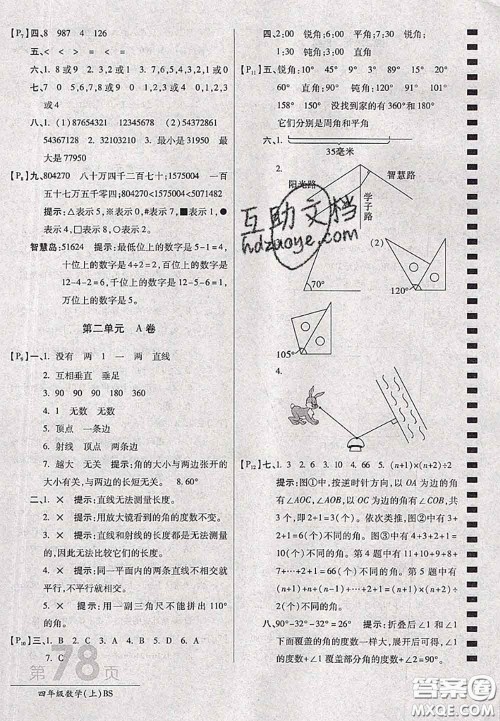 [P7]四、8 987 4 126
五、< = > < < =
六、1. 8或9 2. 3 2 1 0 3. 8或9
七、7 0 5,6,7,8,9 0,1,2,3,4 5,6,7,8,9
5,6,7,8,9 5(或4,3,2,1,0)
八、1.(1)87654321 (2)54367821
54367128 2. 32103210 3. 最小是31780
最大是77950
[P8]九、804270 八十万四千二百七十;1575004 一百
五十七万五千零四;804270<1575004<5071482
提示:▲表示5,※表示0,■表示4,
□表示7,●表示2。
智慧岛:51624 提示:最低位上的数字是5-1=4,
十位上的数字是4÷2=2,百位上的数字是
12-4-2=6,千位上的数字是12-5-6=1,
万位上的数字是5。
第二单元 A卷
[P9]一、1. 没有 两 1 一 两 直线
2. 互相垂直 垂足
3. 90 90 90 180 360
4. 1 无数 无数
5. 顶点 一条边
6. 射线 顶点 两条边
7. 越大 无关 提示:角的大小与两边张开的
大小有关,与边的长短无关。 8. 60°
二、1. × 提示:直线无法测量长度。
2. × 提示:用放大镜看到的角的度数不变。
3. × 提示:直线和射线都无法测量长度,
因此无法比较它们的长度。
4. × 提示:同一平面内的两条直线不相交
就互相平行。
5. × 提示:用一副三角尺不能拼出100°
的角。
[P10]三、1. B 2. A 3. C 4. B 5. B 6. C
7. C
四、1:00 锐角;
2:00 锐角; 4:00 钝角; 6:00 平角;
9:30 钝角; 3:00 直角
[P11]五、锐角:10° 45° 9° 3° 89° 15°
钝角:91° 120° 100° 105° 91°
158° 150° 没找到家的有360°和180°
它们分别是周角和平角
六、1.
35毫米
2.
阳光路
智慧路
学子路
70°
(2)
120°
105°
4.
[P12]七、1. 3 2. 6 3. 10 4. 66 5. (n+1)×(n+2)÷2
提示:图①中,按逆时针方向,以OA为边的
角有∠AOC,∠AOB,以OC为边的角有∠COB,共
有2+1=3(个)。依次类推,图②中有3+2+
1=6(个)不同的角。图③中有4+3+2+
1=10(个)不同的角。第4题中有11+10+9+8+
7+…+2+1=66(个)不同的角。第5题中有
(n+1)+n+…+2+1=(n+1)×(n+2)÷
2(个)不同的角。
八、90°-32°-32°=26° 提示:折叠后∠1
下面覆盖的角的度数与∠1相等,所以∠1
的度数+∠1覆盖部分角的度数+32°=90°。
互助文档
hdzuoye.com
第78页
四年级数学(上)BS
答案圈
MXQE.COM